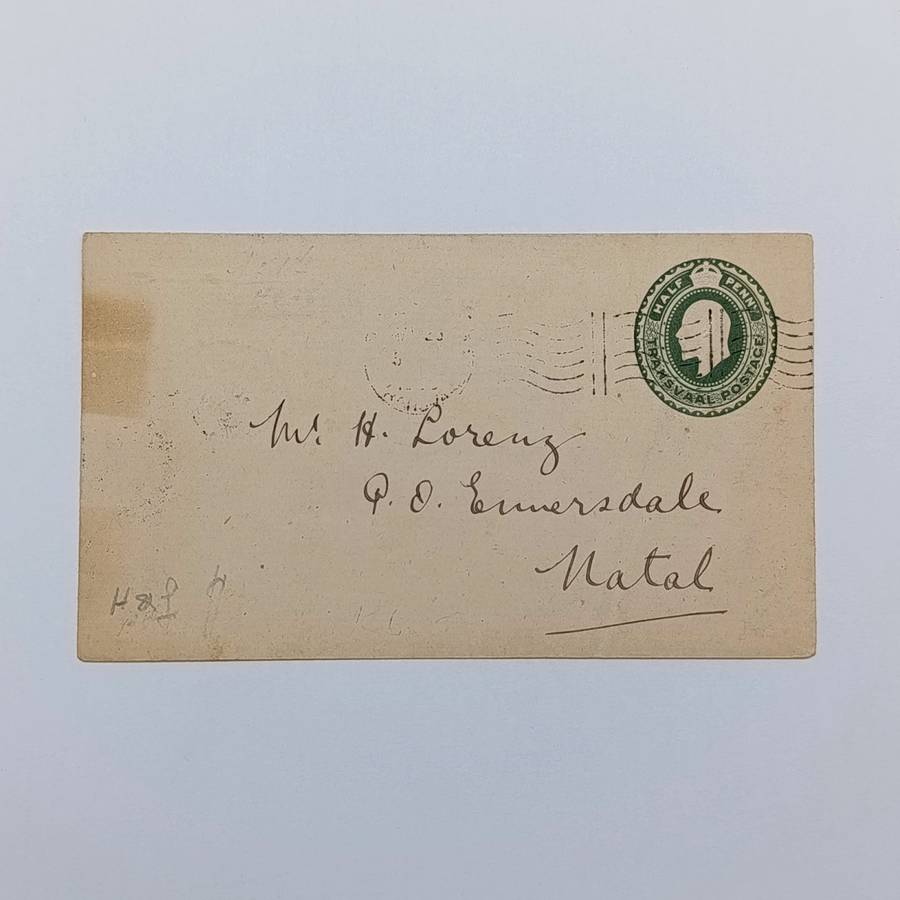 HALF PENNY
TRANSVAAL POSTAGE
Mr. H. Lorenz
P. O. Ennersdale
Natal